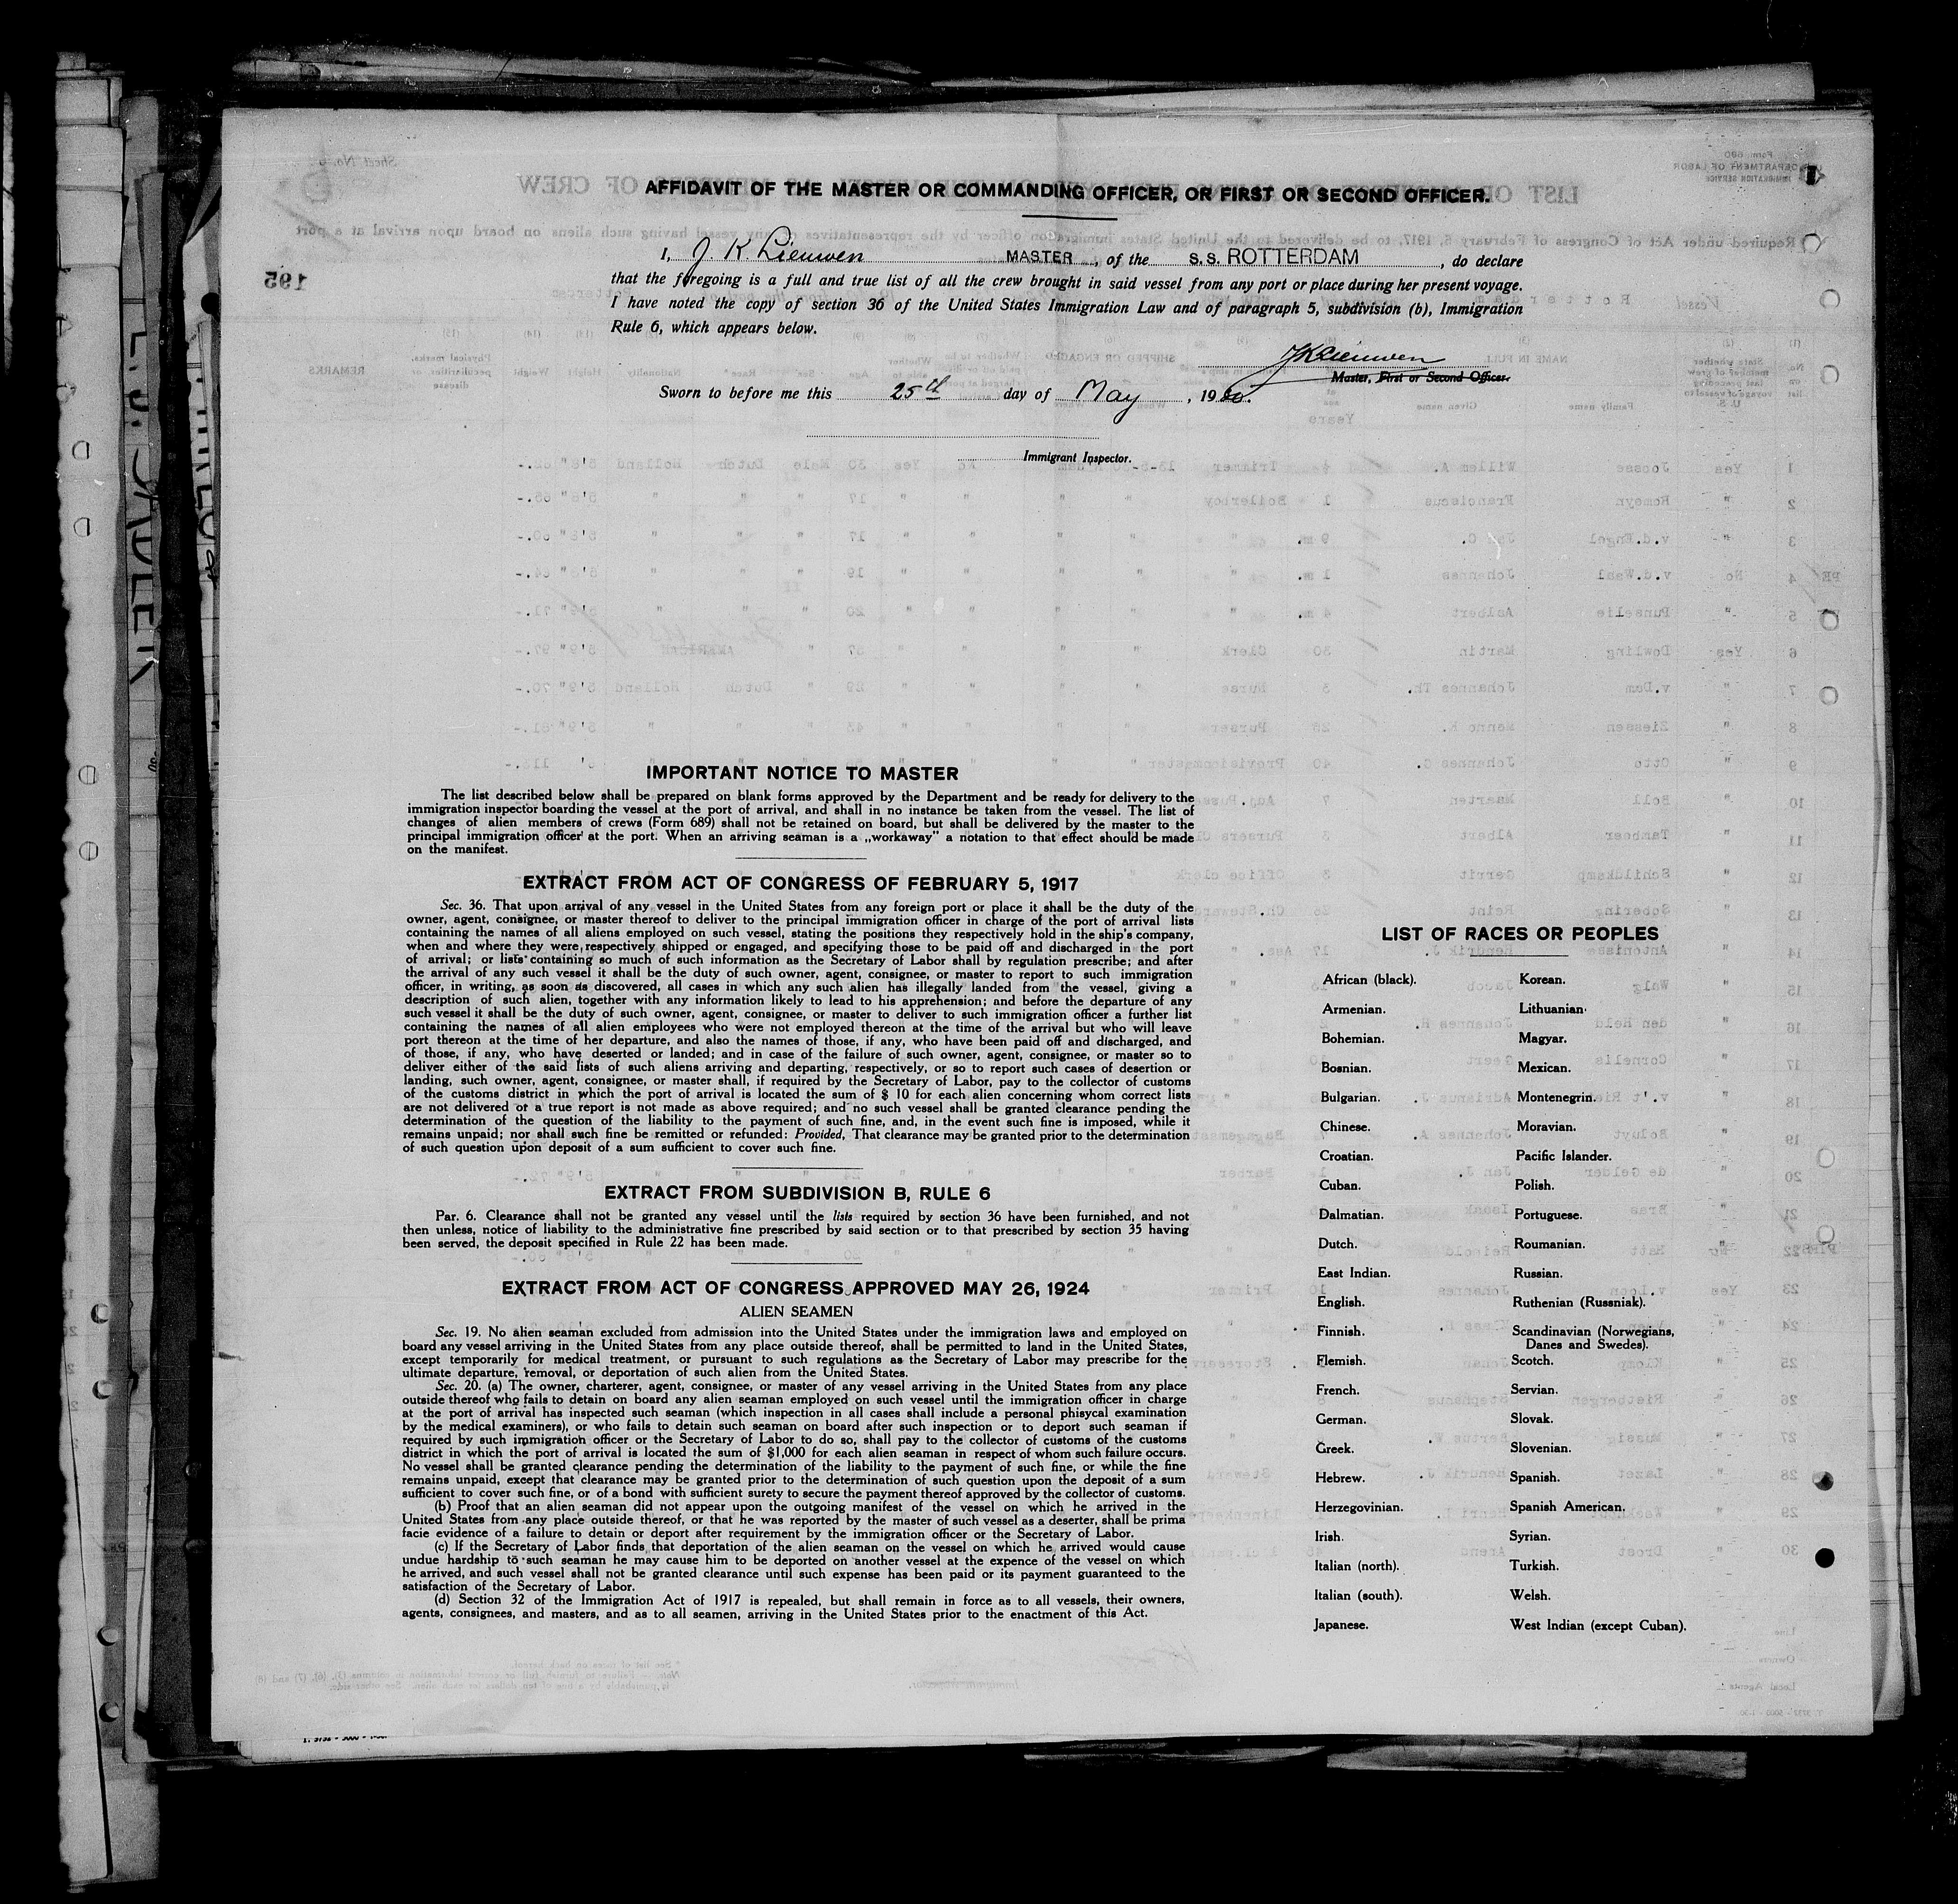 AFFIDAVIT OF THE MASTER OR COMMANDING OFFICER, OR FIRST OR SECOND OFFICER.
I, J. K. Lieuwen MASTER, of the S.S. ROTTERDAM, do declare
that the foregoing is a full and true list of all the crew brought in said vessel from any port or place during her present voyage.
I have noted the copy of section 36 of the United States Immigration Law and of paragraph 5, subdivision (b), Immigration
Rule 6, which appears below.
JKLieuwen
Master, First or Second Officer.
Sworn to before me this 25th day of May, 1930.
Immigrant Inspector.
IMPORTANT NOTICE TO MASTER
The list described below shall be prepared on blank forms approved by the Department and be ready for delivery to the
immigration inspector boarding the vessel at the port of arrival, and shall in no instance be taken from the vessel. The list of
changes of alien members of crews (Form 689) shall not be retained on board, but shall be delivered by the master to the
principal immigration officer at the port. When an arriving seaman is a „workaway" a notation to that effect should be made
on the manifest.
EXTRACT FROM ACT OF CONGRESS OF FEBRUARY 5, 1917
Sec. 36. That upon arrival of any vessel in the United States from any foreign port or place it shall be the duty of the
owner, agent, consignee, or master thereof to deliver to the principal immigration officer in charge of the port of arrival lists
containing the names of all aliens employed on such vessel, stating the positions they respectively hold in the ship's company,
when and where they were respectively shipped or engaged, and specifying those to be paid off and discharged in the port
of arrival; or lists containing so much of such information as the Secretary of Labor shall by regulation prescribe; and after
the arrival of any such vessel it shall be the duty of such owner, agent, consignee, or master to report to such immigration
officer, in writing, as soon as discovered, all cases in which any such alien has illegally landed from the vessel, giving a
description of such alien, together with any information likely to lead to his apprehension; and before the departure of any
such vessel it shall be the duty of such owner, agent, consignee, or master to deliver to such immigration officer a further list
containing the names of all alien employees who were not employed thereon at the time of the arrival but who will leave
port thereon at the time of her departure, and also the names of those, if any, who have been paid off and discharged, and
of those, if any, who have deserted or landed; and in case of the failure of such owner, agent, consignee, or master so to
deliver either of the said lists of such aliens arriving and departing, respectively, or so to report such cases of desertion or
landing, such owner, agent, consignee, or master shall, if required by the Secretary of Labor, pay to the collector of customs
of the customs district in which the port of arrival is located the sum of $ 10 for each alien concerning whom correct lists
are not delivered or a true report is not made as above required; and no such vessel shall be granted clearance pending the
determination of the question of the liability to the payment of such fine, and, in the event such fine is imposed, while it
remains unpaid; nor shall such fine be remitted or refunded: Provided, That clearance may be granted prior to the determination
of such question upon deposit of a sum sufficient to cover such fine.
EXTRACT FROM SUBDIVISION B, RULE 6
Par. 6. Clearance shall not be granted any vessel until the lists required by section 36 have been furnished, and not
then unless, notice of liability to the administrative fine prescribed by said section or to that prescribed by section 35 having
been served, the deposit specified in Rule 22 has been made.
EXTRACT FROM ACT OF CONGRESS APPROVED MAY 26, 1924
ALIEN SEAMEN
Sec. 19. No alien seaman excluded from admission into the United States under the immigration laws and employed on
board any vessel arriving in the United States from any place outside thereof, shall be permitted to land in the United States,
except temporarily for medical treatment, or pursuant to such regulations as the Secretary of Labor may prescribe for the
ultimate departure, removal, or deportation of such alien from the United States.
Sec. 20. (a) The owner, charterer, agent, consignee, or master of any vessel arriving in the United States from any place
outside thereof who fails to detain on board any alien seaman employed on such vessel until the immigration officer in charge
at the port of arrival has inspected such seaman (which inspection in all cases shall include a personal phisycal examination
by the medical examiners), or who fails to detain such seaman on board after such inspection or to deport such seaman if
required by such immigration officer or the Secretary of Labor to do so, shall pay to the collector of customs of the customs
district in which the port of arrival is located the sum of $1,000 for each alien seaman in respect of whom such failure occurs.
No vessel shall be granted clearance pending the determination of the liability to the payment of such fine, or while the fine
remains unpaid, except that clearance may be granted prior to the determination of such question upon the deposit of a sum
sufficient to cover such fine, or of a bond with sufficient surety to secure the payment thereof approved by the collector of customs.
(b) Proof that an alien seaman did not appear upon the outgoing manifest of the vessel on which he arrived in the
United States from any place outside thereof, or that he was reported by the master of such vessel as a deserter, shall be prima
facie evidence of a failure to detain or deport after requirement by the immigration officer or the Secretary of Labor.
(c) If the Secretary of Labor finds that deportation of the alien seaman on the vessel on which he arrived would cause
undue hardship to such seaman he may cause him to be deported on another vessel at the expence of the vessel on which
he arrived, and such vessel shall not be granted clearance until such expense has been paid or its payment guaranteed to the
satisfaction of the Secretary of Labor.
(d) Section 32 of the Immigration Act of 1917 is repealed, but shall remain in force as to all vessels, their owners,
agents, consignees, and masters, and as to all seamen, arriving in the United States prior to the enactment of this Act.
LIST OF RACES OR PEOPLES
African (black).
Armenian.
Bohemian.
Bosnian.
Bulgarian.
Chinese.
Croatian.
Cuban.
Dalmatian.
Dutch.
East Indian.
English.
Finnish.
Flemish.
French.
German.
Greek.
Hebrew.
Herzegovinian.
Irish.
Italian (north).
Italian (south).
Japanese.
Korean.
Lithuanian.
Magyar.
Mexican.
Montenegrin.
Moravian.
Pacific Islander.
Polish.
Portuguese.
Roumanian.
Russian.
Ruthenian (Russniak).
Scandinavian (Norwegians,
Danes and Swedes).
Scotch.
Servian.
Slovak.
Slovenian.
Spanish.
Spanish American.
Syrian.
Turkish.
Welsh.
West Indian (except Cuban).